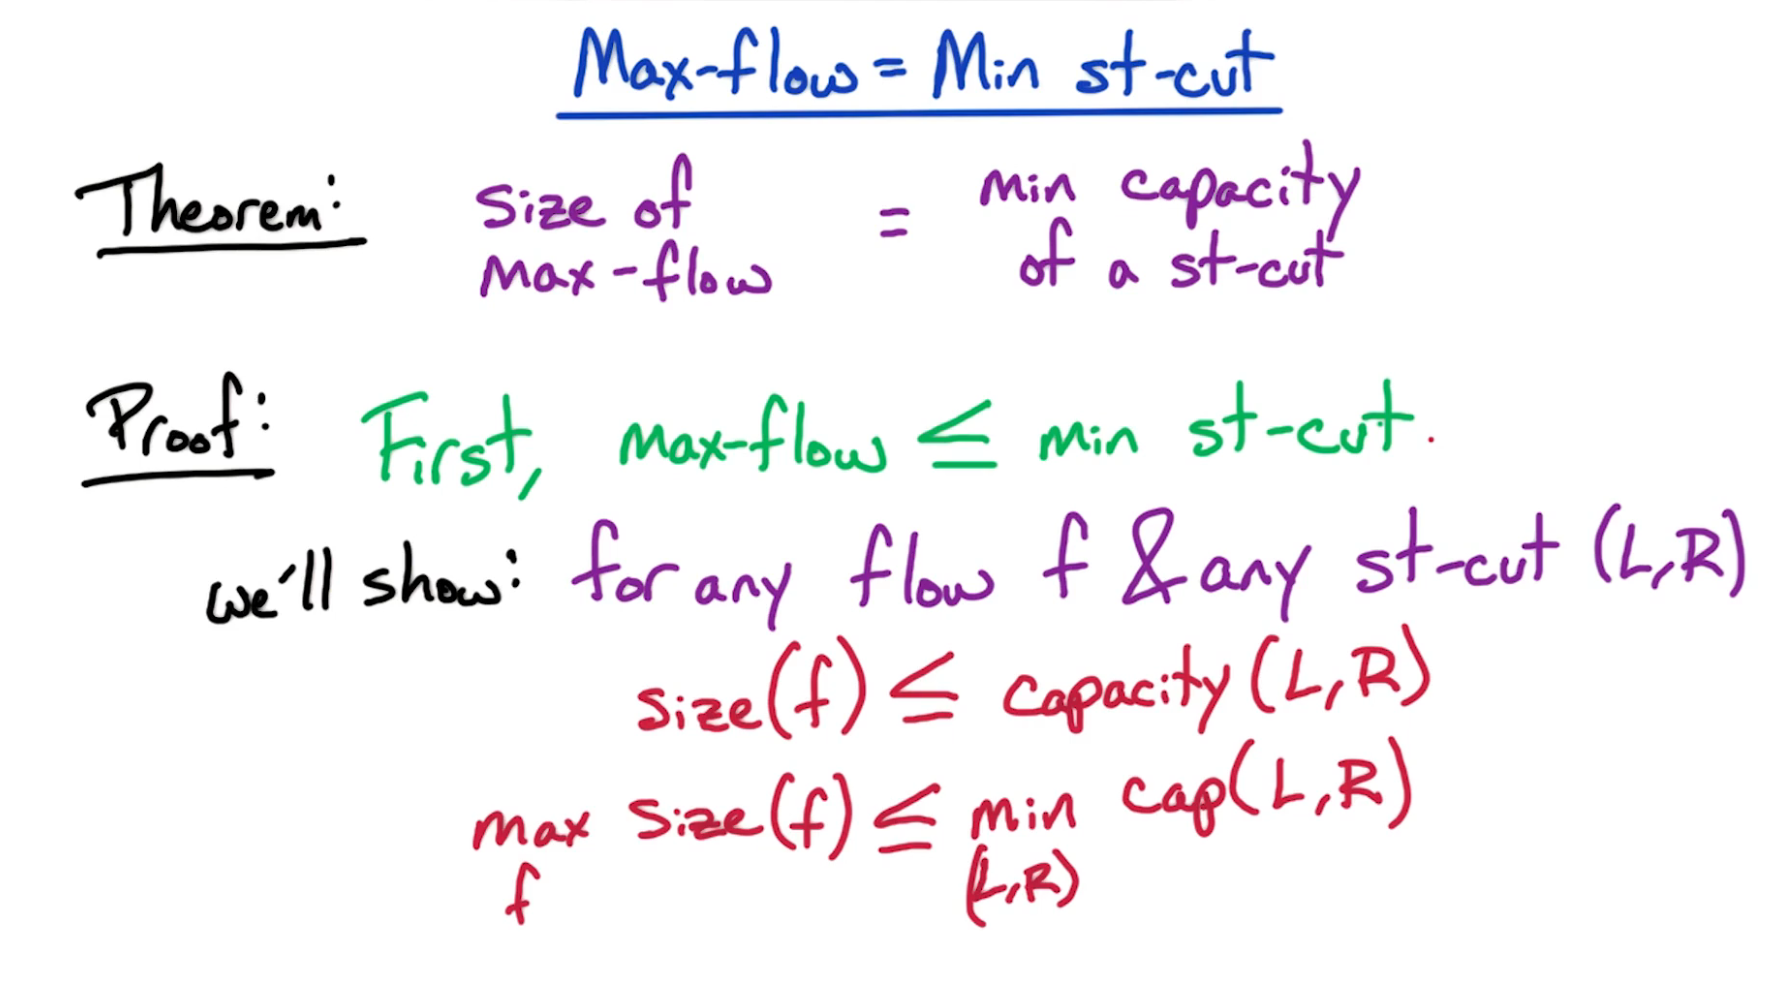 Max-flow = Min st-cut
Theorem: size of max-flow = min capacity of a st-cut
Proof: First, max-flow ≤ min st-cut.
we'll show: for any flow f & any st-cut (L,R)
size(f) ≤ capacity(L,R)
max size(f) ≤ min cap(L,R)
f (L,R)